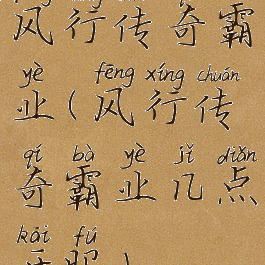 风行传奇霸
yè fēng xíng chuán
业(风行传
qí bà yè jǐ diǎn
奇霸业几点
kāi fú
开服)